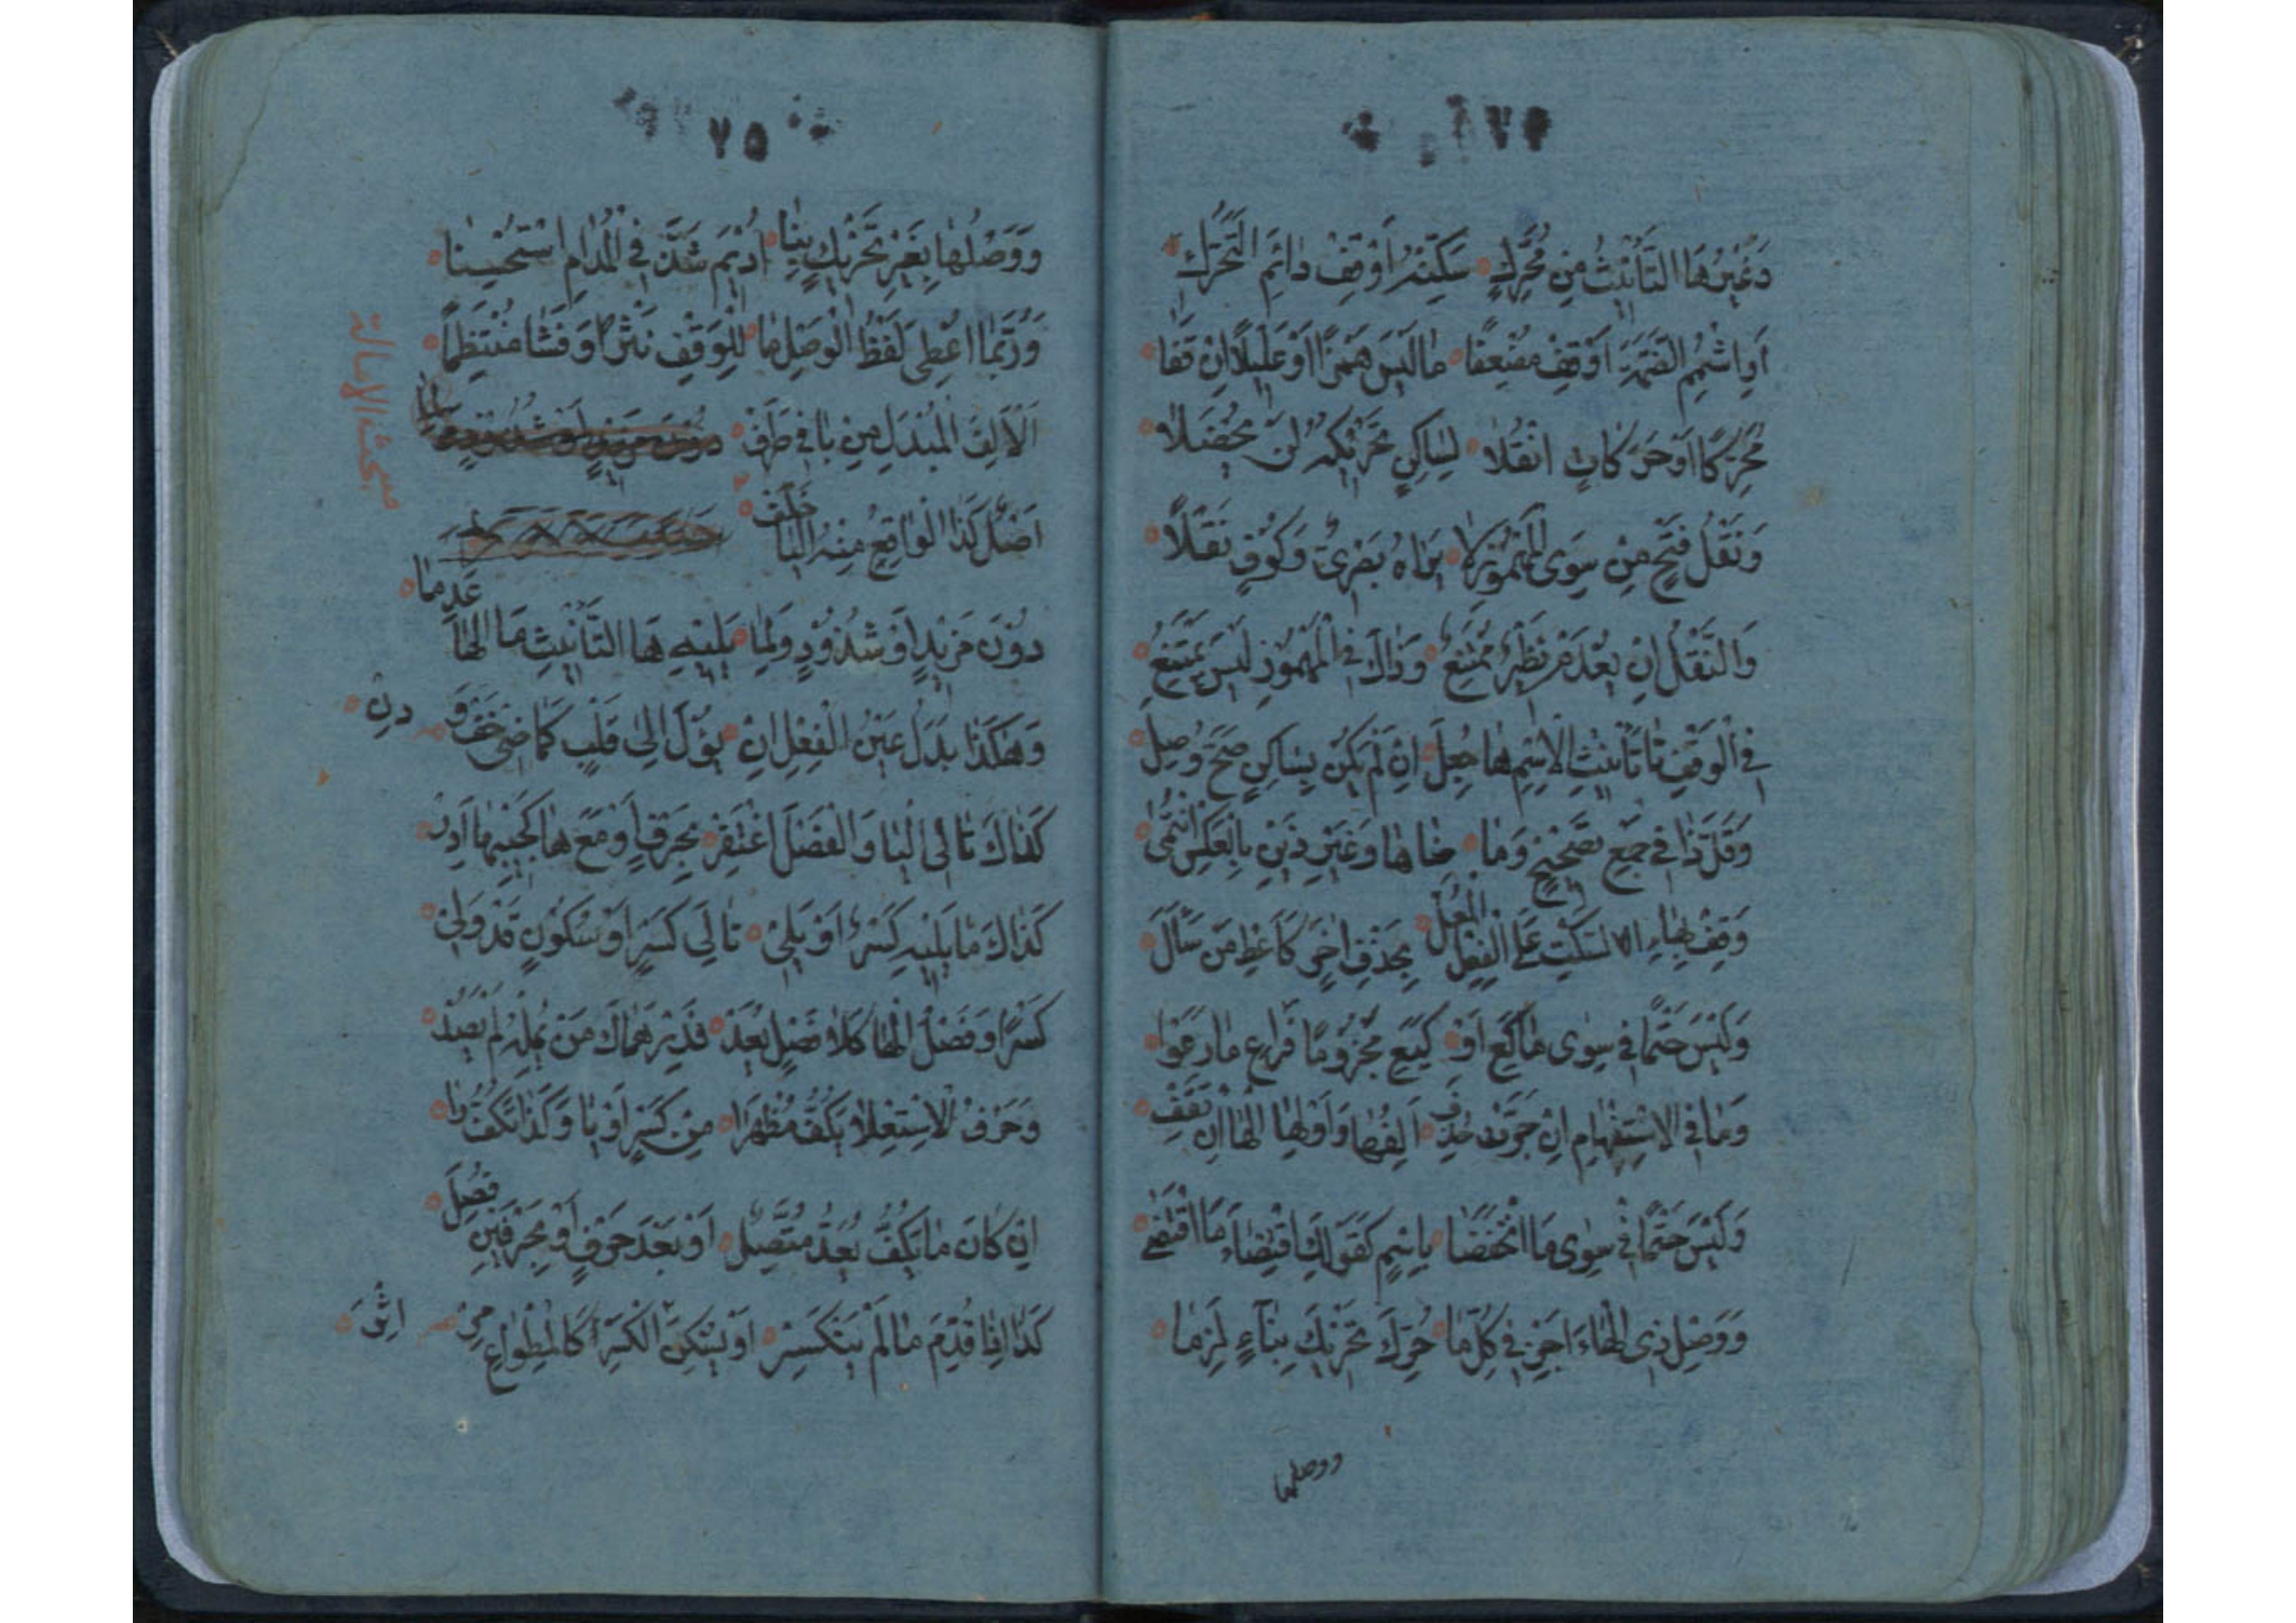 ٧٤
وَغَيْرُهَا التَّأْنِيْثُ مِنْ مُحَرَّكٍ سَكِّنْهُ اَوْقِفْ دٰائِمَ التَّحَرُّكِ
اَوِ اشْمِمِ الضَّمَّةَ اَوْقِفْ مُضْعِفًا مٰا لَيْسَ هَمْزًا اَوْ عَلِيْلًا اِنْ قَفٰا
مُحَرَّكًا اَوْ حَرَكٰاتٍ انْقُلٰا لِسٰاكِنٍ تَحْرِيْكُهُ لَنْ يُحْضَلٰا
وَنَقْلُ فَتْحٍ مِنْ سِوَى الْمَهْمُوْزِ لٰا يَرٰاهُ بَصْرِىٌّ وَكُوْفٍ نَقَلًا
وَالنَّقْلُ اِنْ يُعْدَمْ نَظِيْرٌ مُمْتَنِعٌ وَذٰاكَ فِى الْمَهْمُوْزِ لَيْسَ يَمْتَنِعُ
فِى الْوَقْفِ تٰا تَأْنِيْثِ الْاِسْمِ هٰا جُعِلَ اِنْ لَمْ يَكُنْ بِسٰاكِنٍ صَحَّ وُصِلَ
وَقَلَّ ذٰا فِى جَمْعِ تَصْحِيْحٍ وَمٰا ضٰاهٰا وَغَيْرُ ذَيْنِ بِالْعَكْسِ انْتَمٰى
وَقِفْ بِهٰاءِ السَّكْتِ عَلَى الْفِعْلِ الْمُعَلِّ بِحَذْفِ اٰخِرٍ كَاَعْطِ مَنْ سَأَلَ
وَلَيْسَ حَتْمًا فِى سِوٰى مٰا كَعِ اَوْ كَيَعِ مَجْزُوْمًا فَرٰاعِ مٰا رَعَوْا
وَمٰا فِى الْاِسْتِفْهٰامِ اِنْ جُرَّتْ حُذِفَ اَلِفُهٰا وَاَوْلِهَا الْهٰا اِنْ تَقِفْ
وَلَيْسَ حَتْمًا فِى سِوٰى مَا انْخَفَضٰا بِاِسْمٍ كَقَوْلِكَ اقْتِضٰاءَ مَا اقْتَضٰى
وَوَصْلَ ذِى الْهٰاءِ اَجِزْ فِى كُلِّ مٰا حُرِّكَ تَحْرِيْكَ بِنٰاءٍ لَزِمٰا
ووصلها
٧٥
وَوَصْلُهٰا بِغَيْرِ تَحْرِيْكِ بِنٰا اُدِيْمَ شَذَّ فِى الْمُدٰامِ اسْتُحْسِنٰا
وَرُبَّمٰا اُعْطِىَ لَفْظُ الْوَصْلِ مٰا لِلْوَقْفِ نَثْرًا وَفَشٰا مُنْتَظِمًا
مبحث الامالة
اَلْاَلِفَ الْمُبْدَلَ مِنْ يٰا فِى طَرَفْ
اَمِلْ كَذَا الْوٰاقِعُ مِنْهُ الْيٰا خَلَفْ
دُوْنَ مَزِيْدٍ اَوْ شُذُوْذٍ وَلِمٰا يَلِيْهِ هَا التَّأْنِيْثِ مَا الْهٰا عَدِمٰا
وَهٰكَذٰا بَدَلُ عَيْنِ الْفِعْلِ اِنْ يَؤُلْ اِلٰى فَلْتُ كَمٰاضِى خَفْ وَ دِنْ
كَذٰاكَ تٰالِى الْيٰا وَالْفَصْلَ اغْتُفِرْ بِحَرْفٍ اَوْ مَعْ هٰا كَجَيْبَهٰا اَدِرْ
كَذٰاكَ مٰا يَلِيْهِ كَسْرٌ اَوْ يَلِىْ تٰالِىَ كَسْرٍ اَوْ سُكُوْنٍ قَدْ وَلِىْ
كَسْرًا وَفَصْلُ الْهٰا كَلٰا فَصْلٍ يُعَدّْ فَدِرْهَمٰاكَ مَنْ يُمِلْهُ لَمْ يُصَدّْ
وَحَرْفُ الْاِسْتِعْلٰا يَكُفُّ مُظْهَرًا مِنْ كَسْرٍ اَوْ يٰا وَكَذٰا تَكُفُّ رٰا
اِنْ كٰانَ مٰا يَكُفُّ بَعْدُ مُتَّصِلْ اَوْ بَعْدَ حَرْفٍ اَوْ بِحَرْفَيْنِ فُصِلَ
كَذٰا اِذٰا قُدِّمَ مٰا لَمْ يَنْكَسِرْ اَوْ يَسْكُنِ الْكَسْرَ كَالْمِطْوٰاعِ مِرْ اِثْرَ